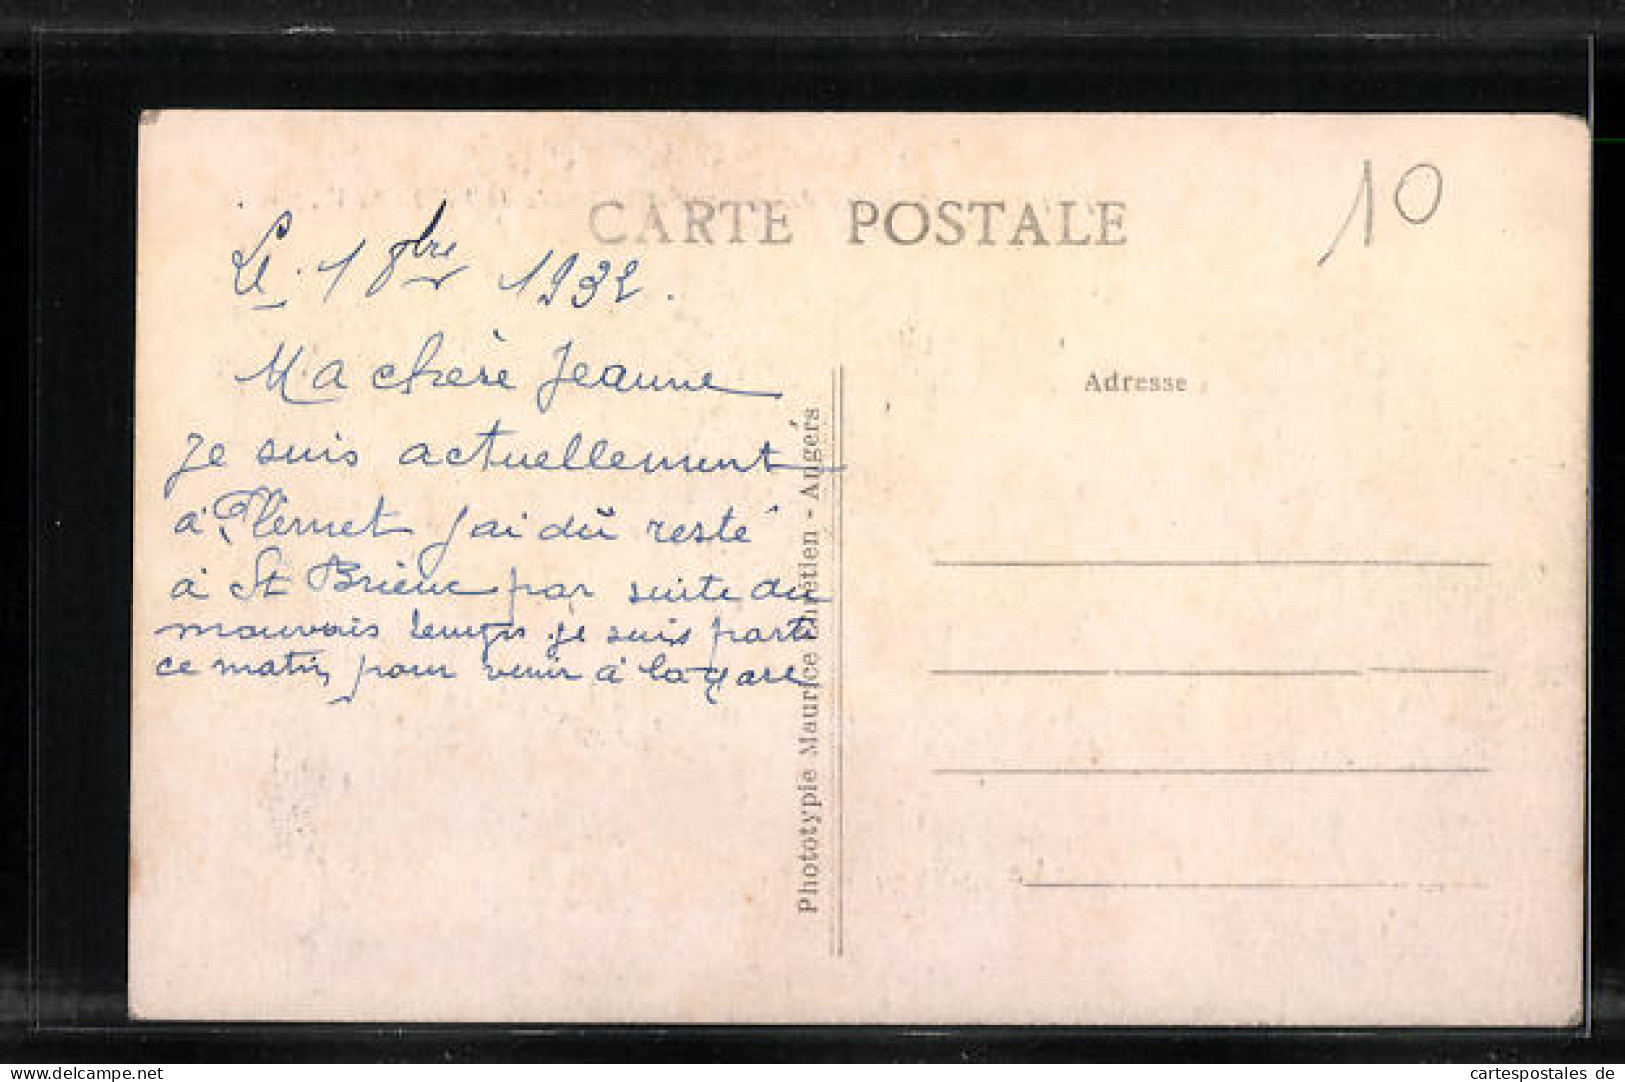 CARTE POSTALE
10
Le 1 8bre 1932.
Ma chère Jeanne
je suis actuellement
à Plémet j'ai dû resté
à St Brieuc par suite du
mauvais temps je suis parti
ce matin pour venir à la gare
Phototypie Maurice Chrétien - Angers
Adresse
www.delcampe.net
cartespostales de